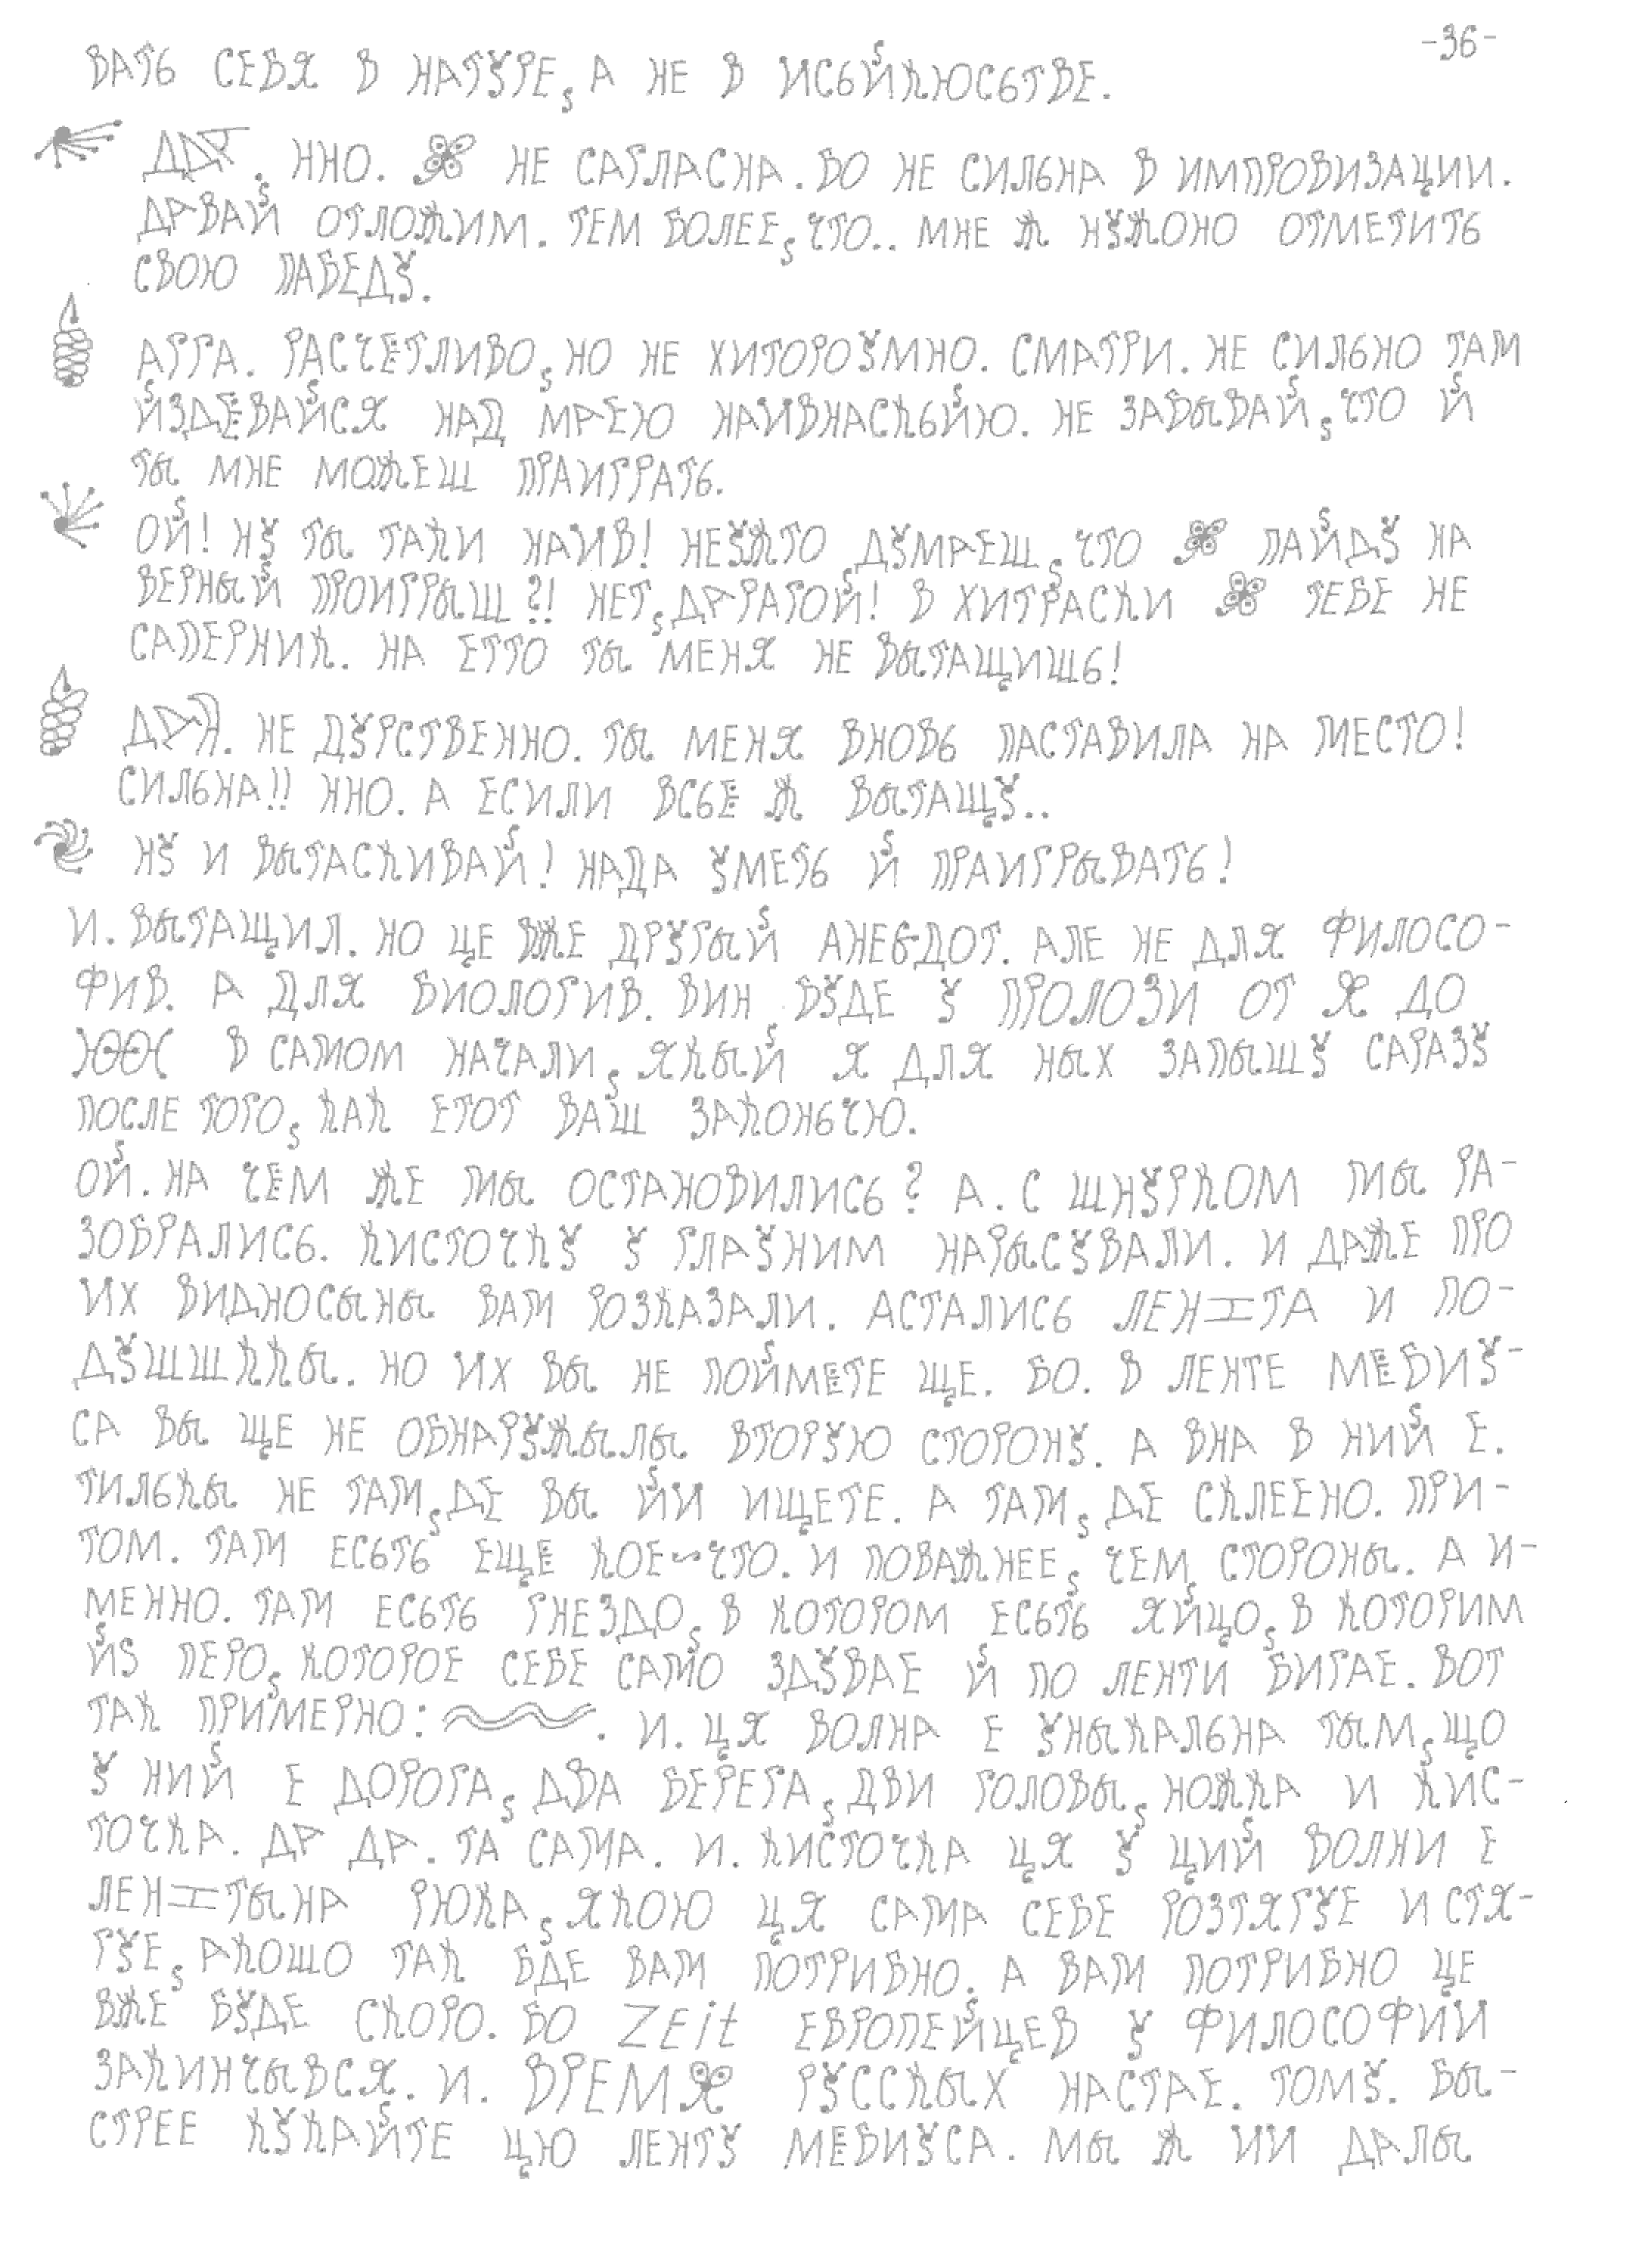 -36-
ВАТЬ СЕБЯ В НАТУРЕ, А НЕ В ИСЬЙКЮСЬТВЕ.
ДДА. ННО. НЕ САГЛАСНА. БО НЕ СИЛЬНА В ИМПРОВИЗАЦИИ.
ДАВАЙ ОТЛОЖИМ. ТЕМ БОЛЕЕ, ЧТО.. МНЕ Ж НУЖОНО ОТМЕТИТЬ
СВОЮ ПАБЕДУ.
АГГА. РАСЧЁТЛИВО, НО НЕ ХИТОРОУМНО. СМАТРИ. НЕ СИЛЬНО ТАМ
ЙЗДЁВАЙСЯ НАД МАЕЮ НАИВНАСКЬЙЮ. НЕ ЗАБЫВАЙ, ЧТО Й
ТЫ МНЕ МОЖЕШ ПРАИГРАТЬ.
ОЙ! НУ ТЫ ТАКИ НАИВ! НЕУЖТО ДУМАЕШ, ЧТО ПАЙДУ НА
ВЕРНЫЙ ПРОИГРЫШ?! НЕТ, ДАРАГОЙ! В ХИТРАСКИ ТЕБЕ НЕ
САПЕРНИК. НА ЕТТО ТЫ МЕНЯ НЕ ВЫТАЩИШЬ!
НЕ ДУРСТВЕННО. ТЫ МЕНЯ ВНОВЬ ПАСТАВИЛА НА МЕСТО!
СИЛЬНА!! ННО. А ЕСИЛИ ВСЬЁ Ж ВЫТАЩУ..
НУ И ВЫТАСКИВАЙ! НАДА УМЕТЬ Й ПРАИГРЫВАТЬ!
И. ВЫТАЩИЛ. НО ЦЕ ВЖЕ ДРУГЫЙ АНЕБДОТ. АЛЕ НЕ ДЛЯ ФИЛОСО-
ФИВ. А ДЛЯ БИОЛОГИВ. ВИН БУДЕ У ПРОЛОЗИ ОТ Я ДО
В САМОМ НАЧАЛИ, ЯКЫЙ Я ДЛЯ НЫХ ЗАПЫШУ САРАЗУ
ПОСЛЕ ТОГО, КАК ЕТОТ ВАШ ЗАКОНЬЧЮ.
ОЙ. НА ЧЁМ ЖЕ МЫ ОСТАНОВИЛИСЬ? А. С ШНУРКОМ МЫ РА-
ЗОБРАЛИСЬ. КИСТОЧКУ У ГЛАУНИМ НАРЫСУВАЛИ. И ДАЖЕ ПРО
ИХ ВИДНОСЫНЫ ВАМ РОЗКАЗАЛИ. АСТАЛИСЬ ЛЕНТА И ПО-
ДУШШККЫ. НО ИХ ВЫ НЕ ПОЙМЁТЕ ЩЕ. БО. В ЛЕНТЕ МЁБИУ-
СА ВЫ ЩЕ НЕ ОБНАРУЖЫЛЫ ВТОРУЮ СТОРОНУ. А ВНА В НИЙ Е.
ТИЛЬКЫ НЕ ТАМ, ДЕ ВЫ ЙИ ИЩЕТЕ. А ТАМ, ДЕ СКЛЕЕНО. ПРИ-
ТОМ. ТАМ ЕСЬТЬ ЕЩЁ КОЕ~ЧТО. И ПОВАЖНЕЕ, ЧЕМ СТОРОНЫ. А И-
МЕННО. ТАМ ЕСЬТЬ ГНЕЗДО, В КОТОРОМ ЕСЬТЬ ЯЙЦО, В КОТОРИМ
ЙS ПЕРО, КОТОРОЕ СЕБЕ САМО ЗДУВАЕ Й ПО ЛЕНТИ БИГАЕ. ВОТ
ТАК ПРИМЕРНО: . И. ЦЯ ВОЛНА Е УНЫКАЛЬНА ТЫМ, ЩО
У НИЙ Е ДОРОГА, ДВА БЕРЕГА, ДВИ ГОЛОВЫ, НОЖКА И КИС-
ТОЧКА. ДА ДА. ТА САМА. И. КИСТОЧКА ЦЯ У ЦИЙ ВОЛНИ Е
ЛЕНТЫНА РЮКА, ЯКОЮ ЦЯ САМА СЕБЕ РОЗТЯГУЕ И СТЯ-
ГУЕ, АКОШО ТАК БДЕ ВАМ ПОТРИБНО. А ВАМ ПОТРИБНО ЦЕ
ВЖЕ БУДЕ СКОРО. БО ZEit ЕВРОПЕЙЦЕВ У ФИЛОСОФИИ
ЗАКИНЧЫВСЯ. И. ВРЕМЯ РУССКЫХ НАСТАЕ. ТОМУ. БЫ-
СТРЕЕ КУКАЙТЕ ЦЮ ЛЕНТУ МЁБИУСА. МЫ Ж ИИ ДАЛЫ